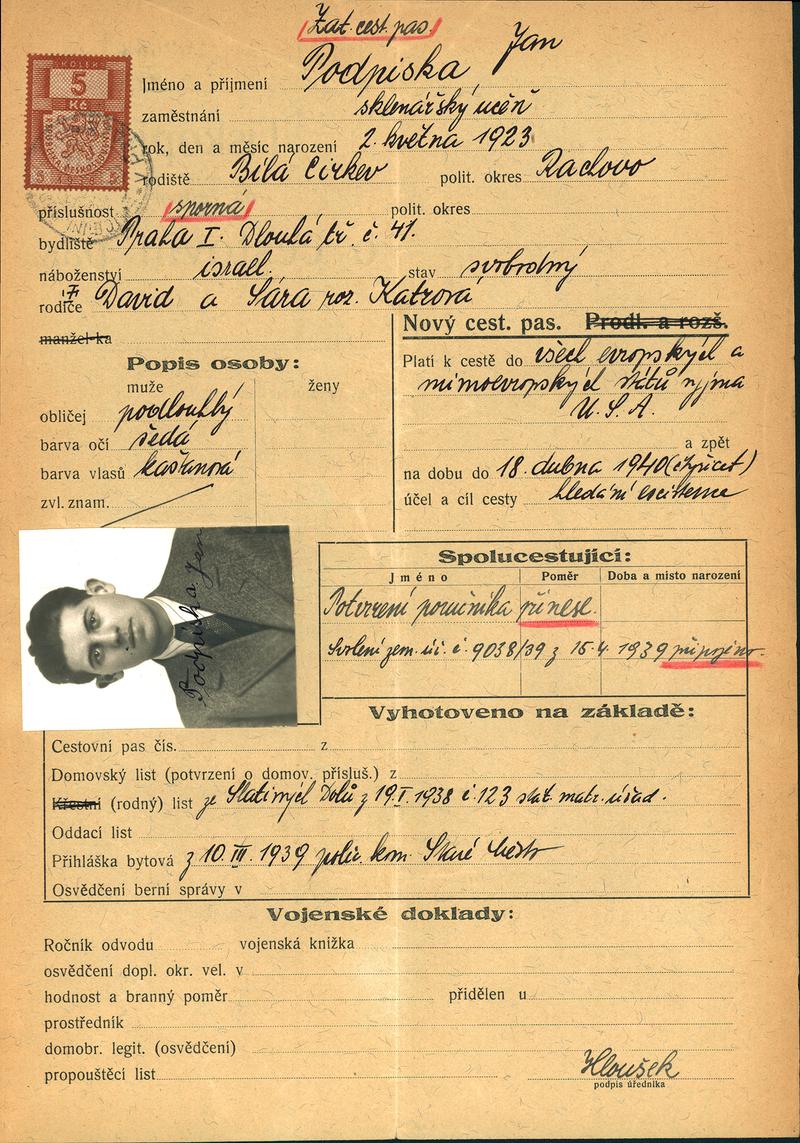 Zat. cest. pas.
KOLEK
5
Kč
Jméno a příjmení Podpiska Jan
zaměstnání sklenářský učeň
rok, den a měsíc narození 2. května 1923
rodiště Bílá Cirkev polit. okres Rachovo
příslušnost sporná polit. okres
bydliště Praha I. Dlouhá tř. č. 41.
náboženství israel. stav svobodný
rodiče David a Sára roz. Katzová
manžel-ka
Nový cest. pas. Prodl. a rozš.
Popis osoby:
muže ženy
obličej podlouhlý
barva očí šedá
barva vlasů kaštanová
zvl. znam.
Platí k cestě do všech evropských a
mimoevropských států vyjma
U. S. A.
a zpět
na dobu do 18. dubna 1940
účel a cíl cesty hledání existence
Podpiska Jan
Spolucestující:
Jméno Poměr Doba a místo narození
Potvrzení poručníka přinese.
Svolení zem. úř. č. 9038/39 z 15.4. 1939 připojeno.
Vyhotoveno na základě:
Cestovní pas čís. z
Domovský list (potvrzení o domov. přísluš.) z
Křestní (rodný) list ze Slatinských Dolů z 19.I.1938 č. 123 stat. matr. úřad.
Oddací list
Přihláška bytová z 10. III. 1939 polic. kom. Staré město
Osvědčení berní správy v
Vojenské doklady:
Ročník odvodu vojenská knížka
osvědčení dopl. okr. vel. v
hodnost a branný poměr přidělen u
prostředník
domobr. legit. (osvědčení)
propouštěcí list
Hloušek
podpis úředníka